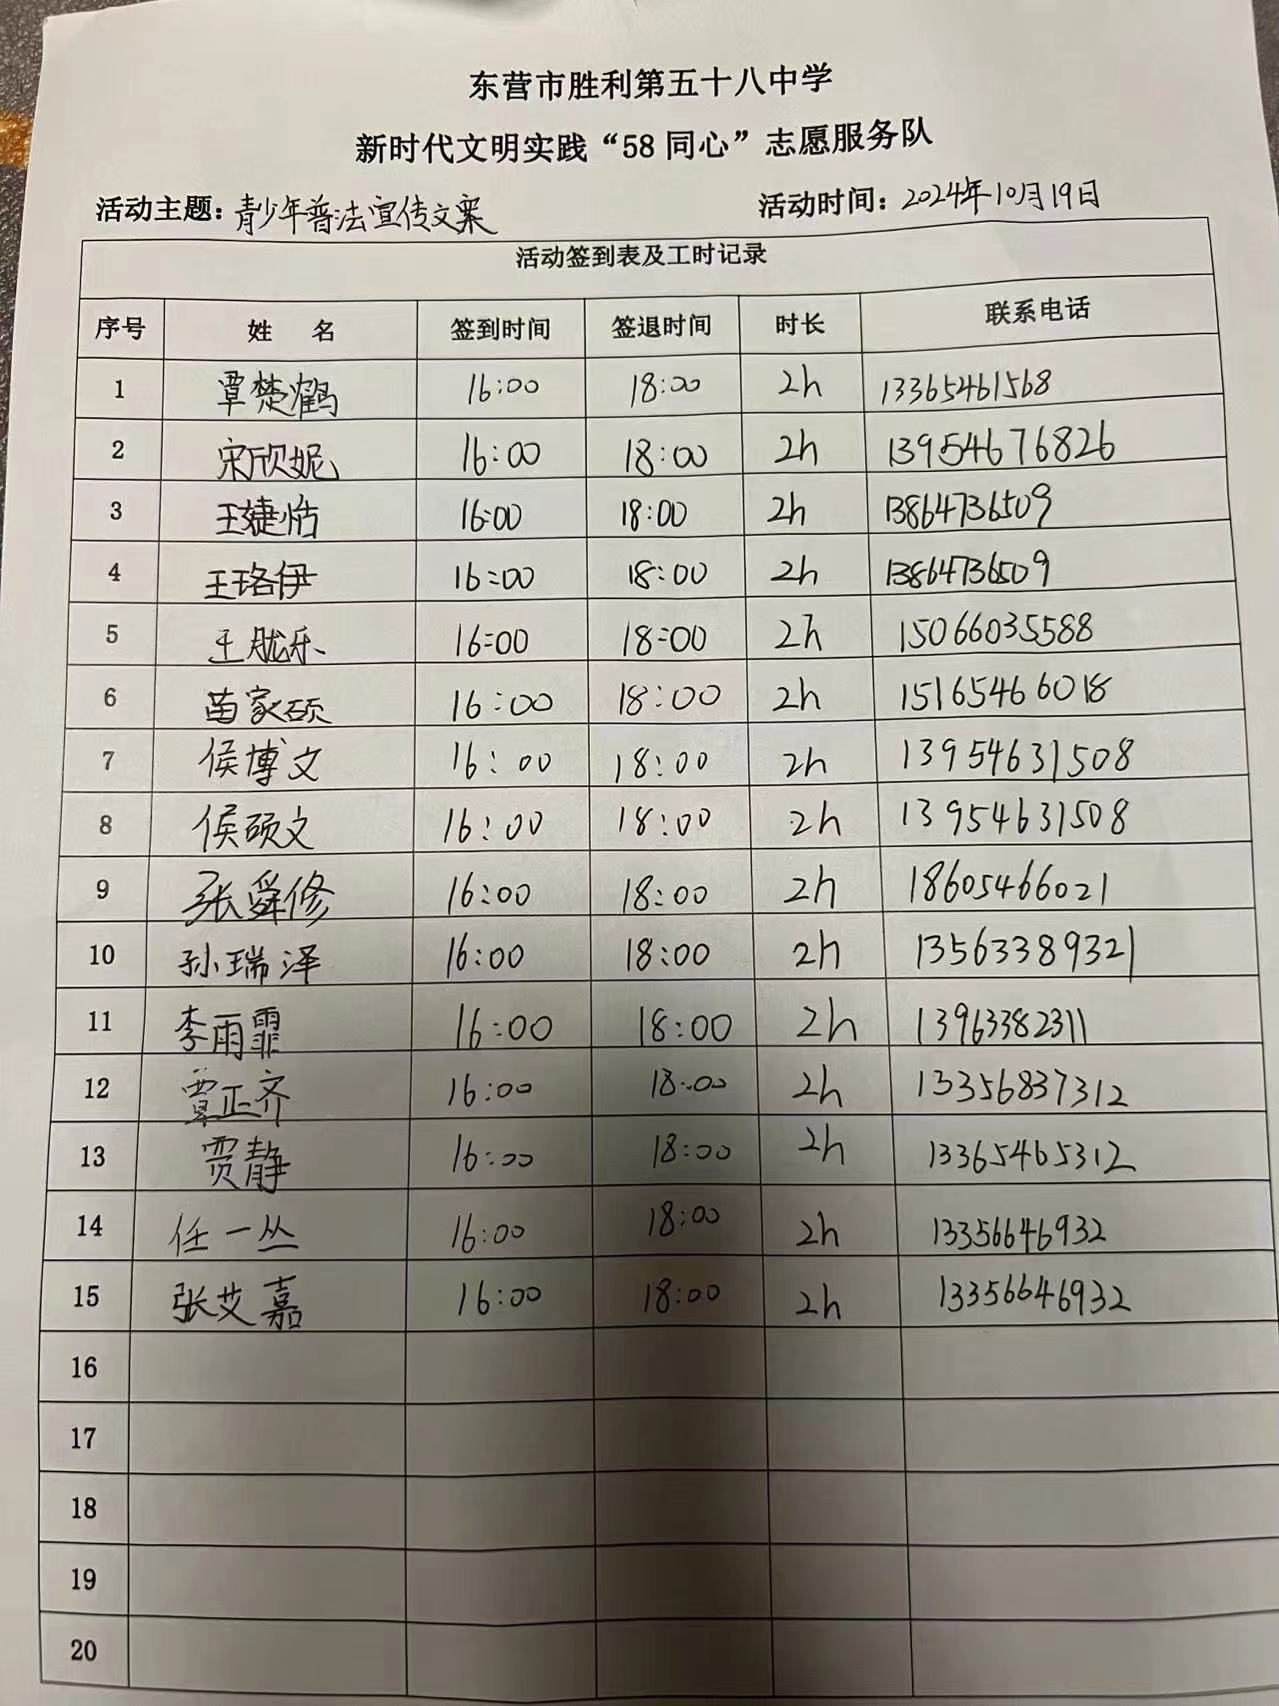 东营市胜利第五十八中学
新时代文明实践“58同心”志愿服务队
活动主题：青少年普法宣传文案 活动时间：2024年10月19日
活动签到表及工时记录
序号 姓 名 签到时间 签退时间 时长 联系电话
1 覃楚鹤 16:00 18:00 2h 13365461568
2 宋欣妮 16:00 18:00 2h 13954676826
3 王婕怡 16:00 18:00 2h 13864736509
4 王珞伊 16:00 18:00 2h 13864736509
5 王 乐 16:00 18:00 2h 15066035588
6 苗家硕 16:00 18:00 2h 15165466018
7 侯博文 16:00 18:00 2h 13954631508
8 侯硕文 16:00 18:00 2h 13954631508
9 张舜修 16:00 18:00 2h 18605466021
10 孙瑞泽 16:00 18:00 2h 13563389321
11 李雨霏 16:00 18:00 2h 13963382311
12 覃正齐 16:00 18:00 2h 13356837312
13 贾静 16:00 18:00 2h 13365465312
14 任一丛 16:00 18:00 2h 13356646932
15 张艾嘉 16:00 18:00 2h 13356646932
16
17
18
19
20